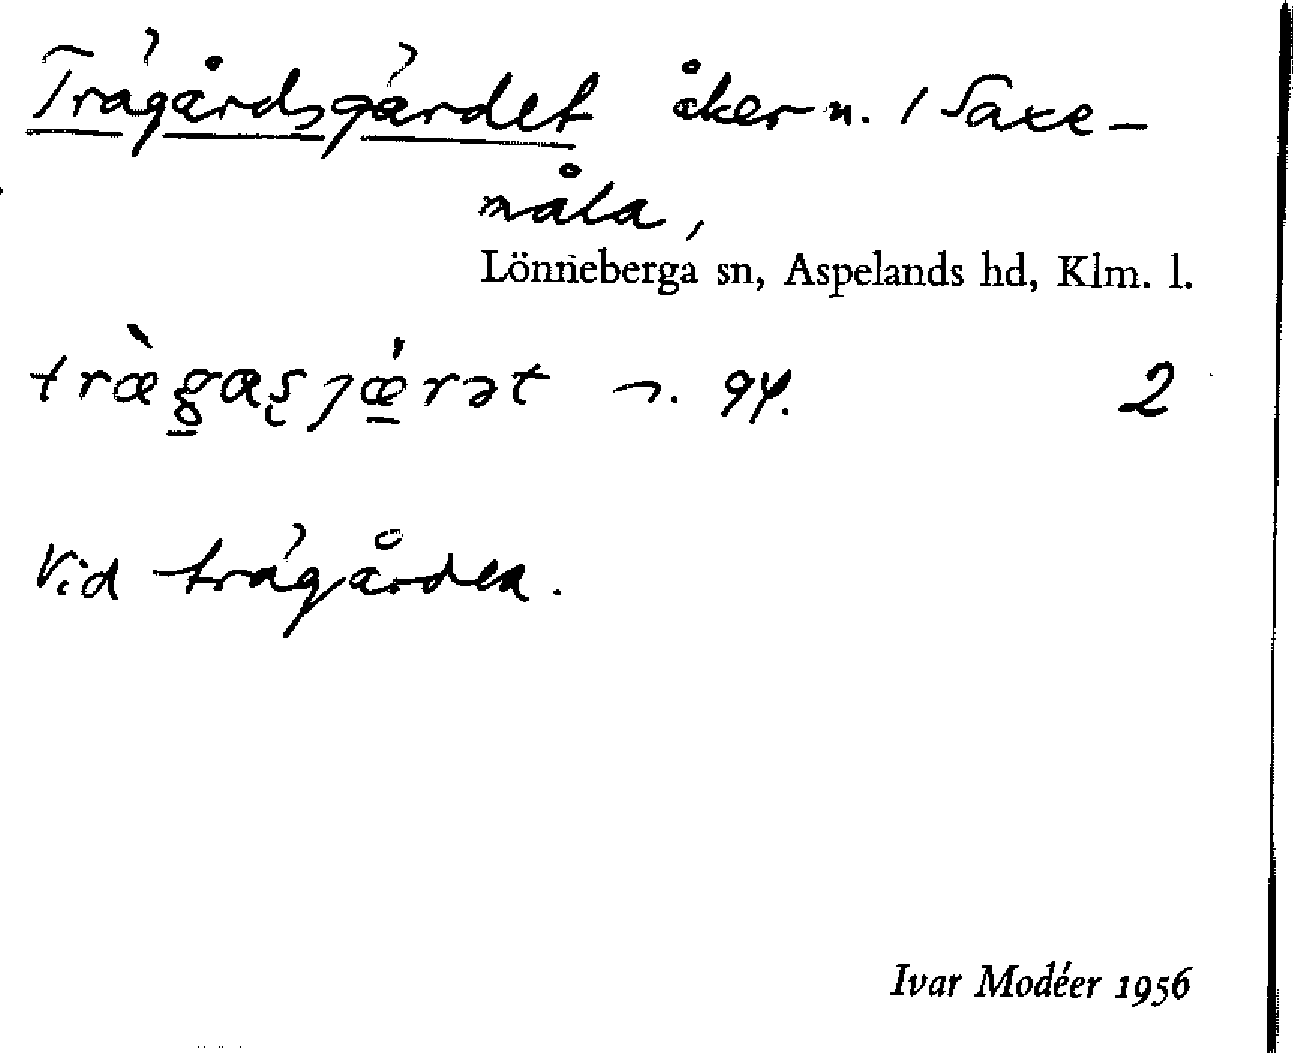 Trägårdsgärdet åkern. i Saxe-
måla,
Lönneberga sn, Aspelands hd, Klm. l.
træ̀gas̨jǽrət n. 94. 2
Vid trägården.
Ivar Modéer 1956